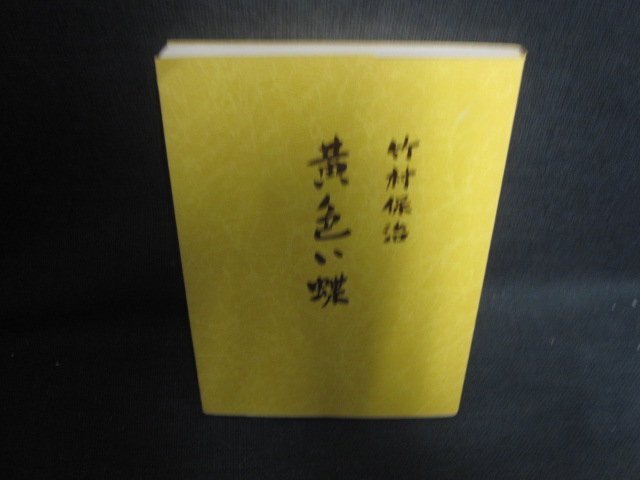 竹村保治
黄色い蝶